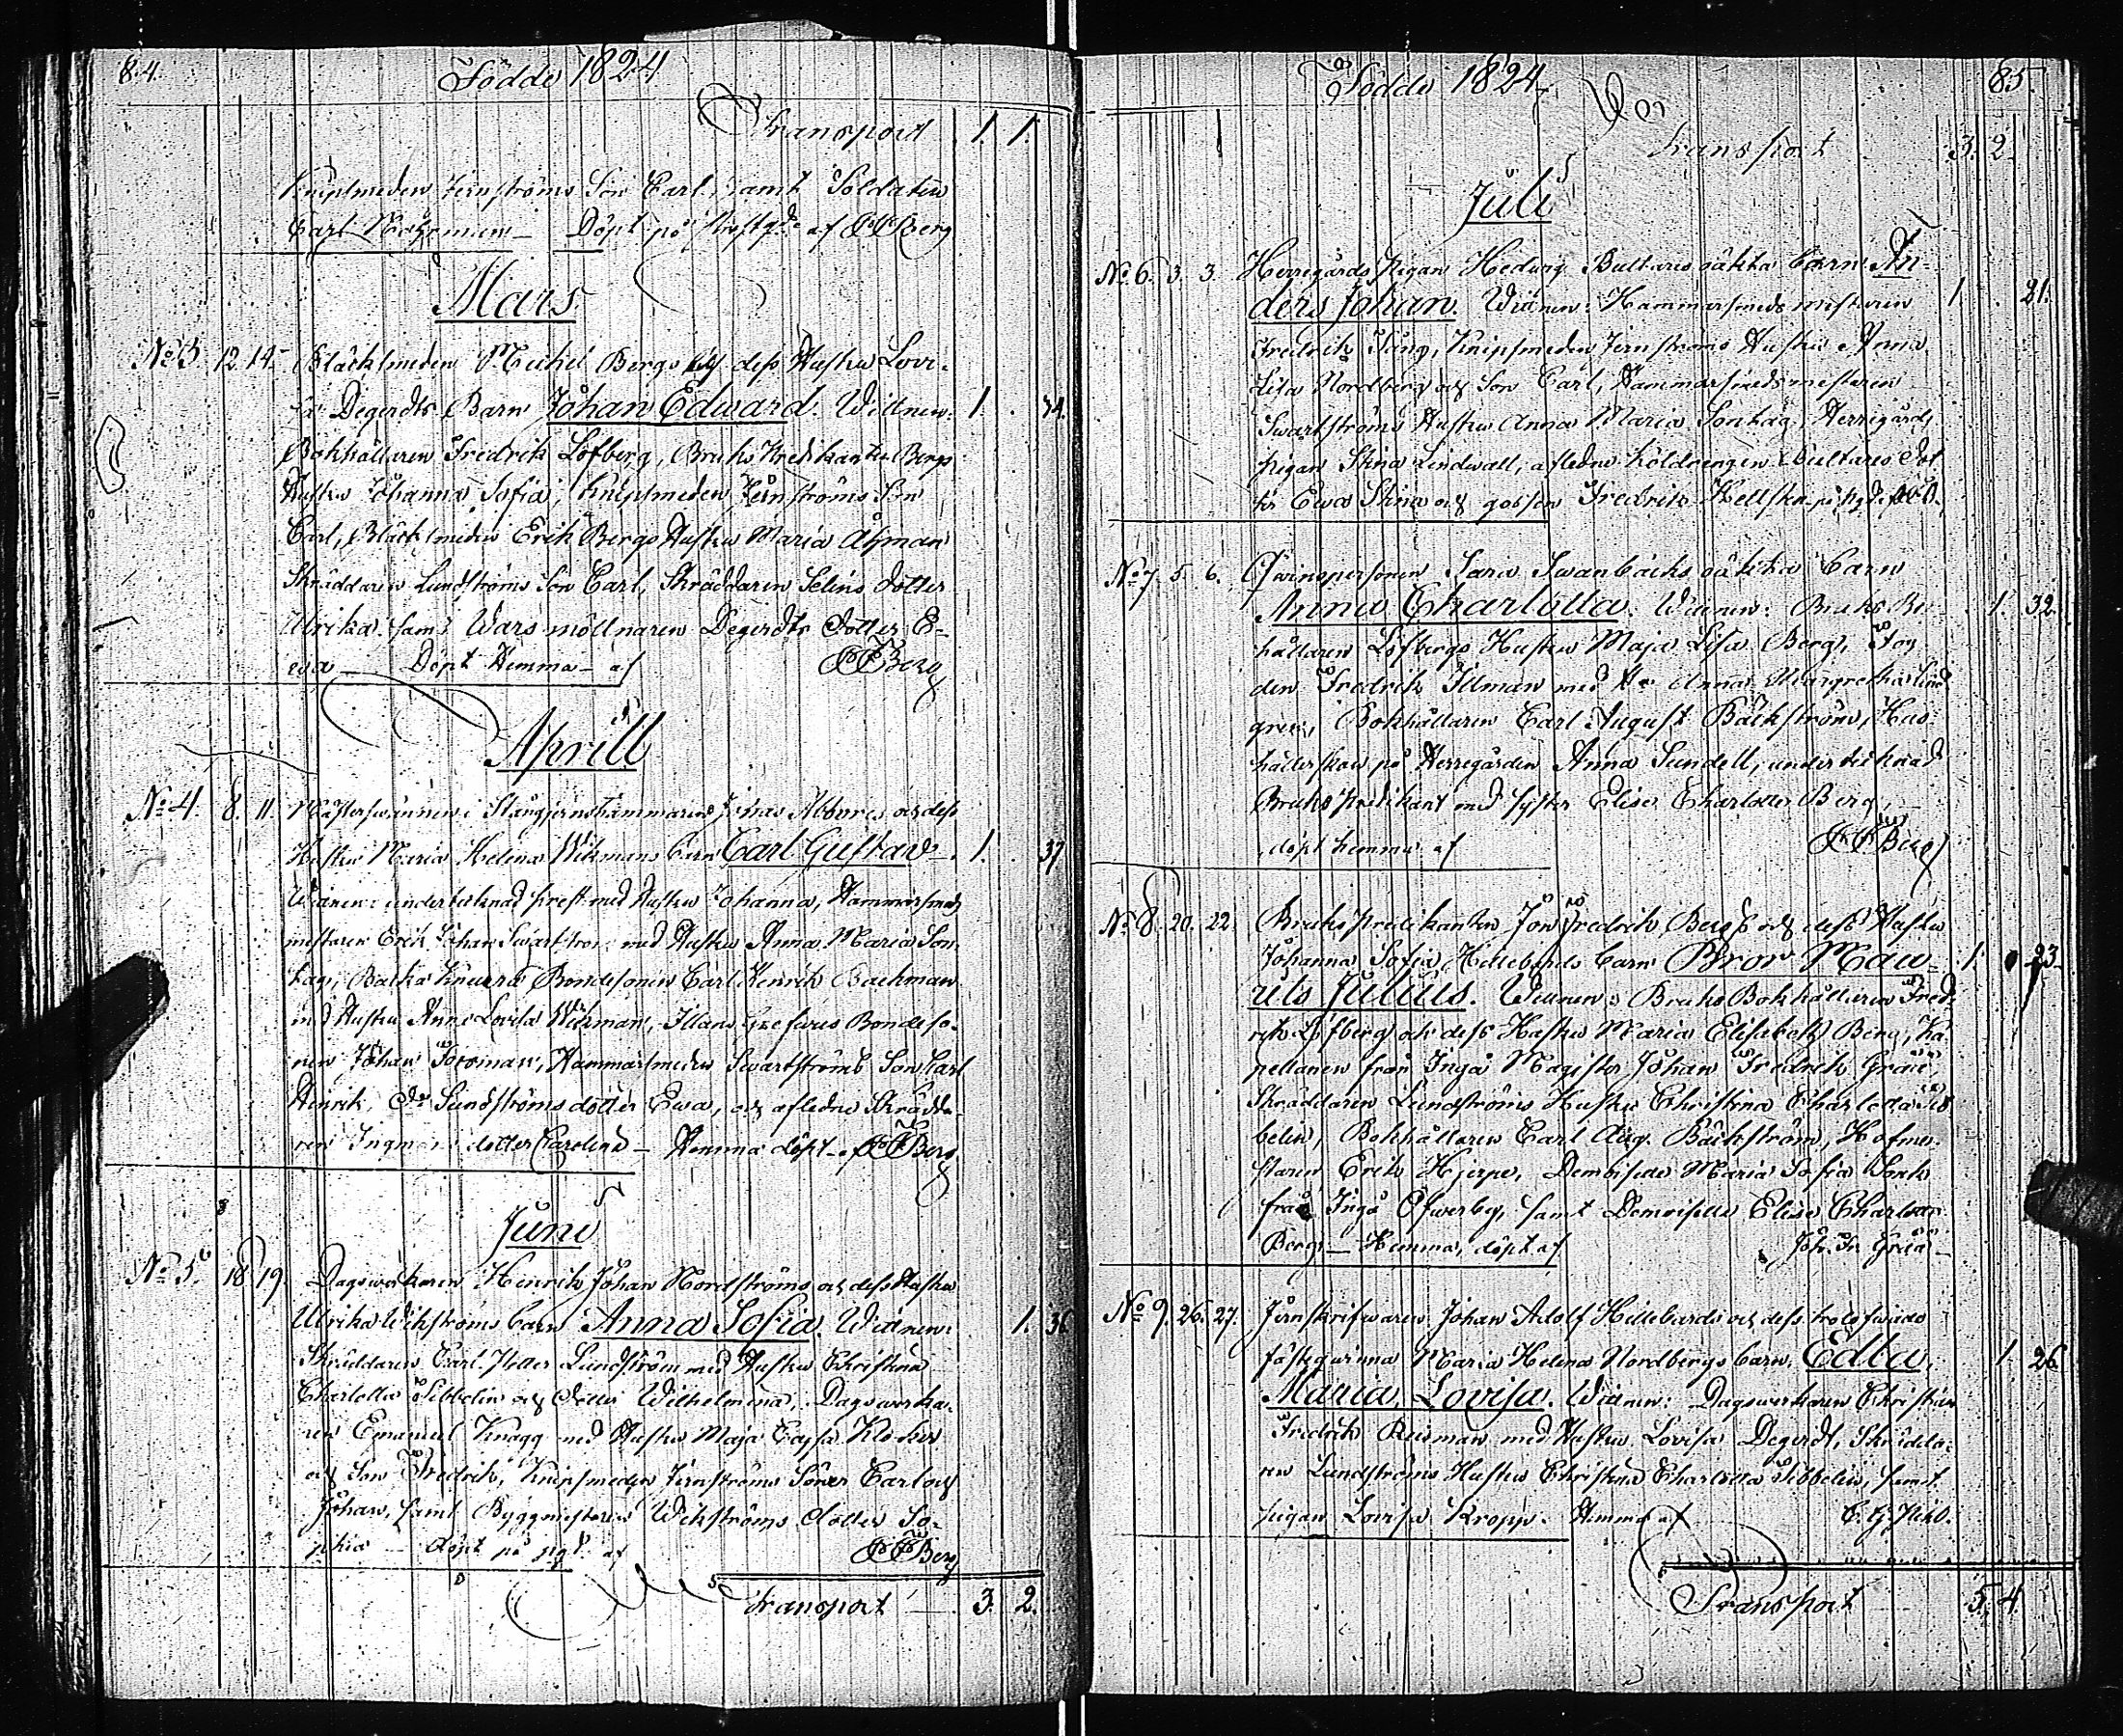 84.
Födde 1824
Transport 1. 1.
Knipsmeden Jernströms Son Carl, samt Soldaten
Carl Döpt på af JFBerg
Mars
No 3 12. 14. Bläcksmeden Michel Bergs och dess Hustru Lovi-
sa Degerdts Barn Johan Edward. Wittnen: 1. 34.
Bokhållaren Fredrik Löfberg, Bruks Predikanten Bergs
Hustru Johanna Sofia, Knipsmeden Jernströms Son
Carl, Bläcksmeden Erik Bergs Hustru Maria Åhman
Skräddaren Lundströms Son Carl, Skräddaren Selins dotter
Ulrika samt Degerdts Dotter E-
va Döpt Hemma af JFBerg
Aprill
No 4. 8. 11. Mästersvännen i Stångjernshammaren och dess
Hustru Maria Helena Wikmans barn Carl Gustav 1. 37
Wittnen: undertecknad prest med Hustru Johanna, Hammarsmeds
mästaren Erik Johan Swartström med Hustru Anna Maria Son-
tag, Backa Bondesonen Carl Henrik Backman
med Hustru Anna Lovisa Wikman, Bondeso-
nen Johan Forsman, Hammarsmeden Swartströms Son Carl
Henrik, Do Sundströms dotter Ewa, och afledne Skrädda-
ren dotter Carolina – Hemma döpt af JFBerg
Juni
No 5. 18 19. Dagsverkaren Henrik Johan Nordströms och dess Hustru
Ulrika Wikströms barn Anna Sofia. Wittnen: 1. 36
Skräddaren Carl Petter Lundström med Hustru Christina
Charlotta Sibbelin och Dotter Wilhelmina, Dagsverka-
ren Emanuel Knagg med Hustru Maja Cajsa Klocker
och Son Fredrik, Knipsmeden Jernströms Söner Carl och
Johan, samt Byggmästaren Wikströms dotter So-
phia döpt på af JFBerg
Transport 3. 2.
Födde 1824. 85.
Transport 3. 2.
Juli
No 6. 3. 3. Herregårds Pigan Hedwig Bultares oäkta barn An-
ders Johan. Wittnen: Hammarsmeds mästaren 1. 21.
Fredrik Tång, Knipsmeden Jernströms Hustru Anna
Lisa Nordberg och Son Carl, Hammarsmedsmästaren
Swartströms Hustru Anna Maria Sontag, Herregårds
pigan Stina Lindwall, afledne Bultares Dot
ter Ewa Stina och gossen Fredrik
No 7. 5. 6. Qwinspersonen Sara Swanbäcks oäkta barn
Anna Charlotta. Wittnen: Bruks Bok- 1. 32.
hållaren Löfbergs Hustru Maja Lisa Berg, Fog
den Fredrik Illman med Anna Margretha Lind
gren, Bokhållaren Carl August Bäckström, Hus-
hållerskan på Herregården Anna Sundell, undertecknad
Bruks Predikant med syster Elise Charlotte Berg,
döpt hemma af JFBerg
No 8. 20. 22. Bruks predikanten Jon Fredrik Bergs och dess Hustru
Johanna Sofia Hillebards barn Bror Mau- 1. 23.
rits Julius. Wittnen: Bruks Bokhållaren Fred-
rik Löfberg och dess Hustru Maria Elisabeth Berg, Ka-
pellanen från Ingå Magister Johan Fredrik
Skräddaren Lundströms Hustru Christina Charlotta Sib
belin, Bokhållaren Carl Aug. Bäckström, Hofme-
staren Erik Hjerpe, Demoiselle Maria Sofia
från Ingå Öfwerby, samt Demoiselle Elise Charlotte
Berg – Hemma, döpt af Joh. Fr.
No 9. 26. 27. Jernskrifwaren Johan Adolf Hillebards och dess trolofwade
fästeqwinna Maria Helena Nordbergs barn, Edla 1. 26
Maria Lovisa. Wittnen: Dagswerkaren Christian
Fredrik Reisman med Hustru Lovisa Degerdt, Skrädda-
ren Lundströms Hustru Christina Charlotta Sibbelin, samt
pigan Lovisa Kropp. Hemma af
Transport 5. 4.